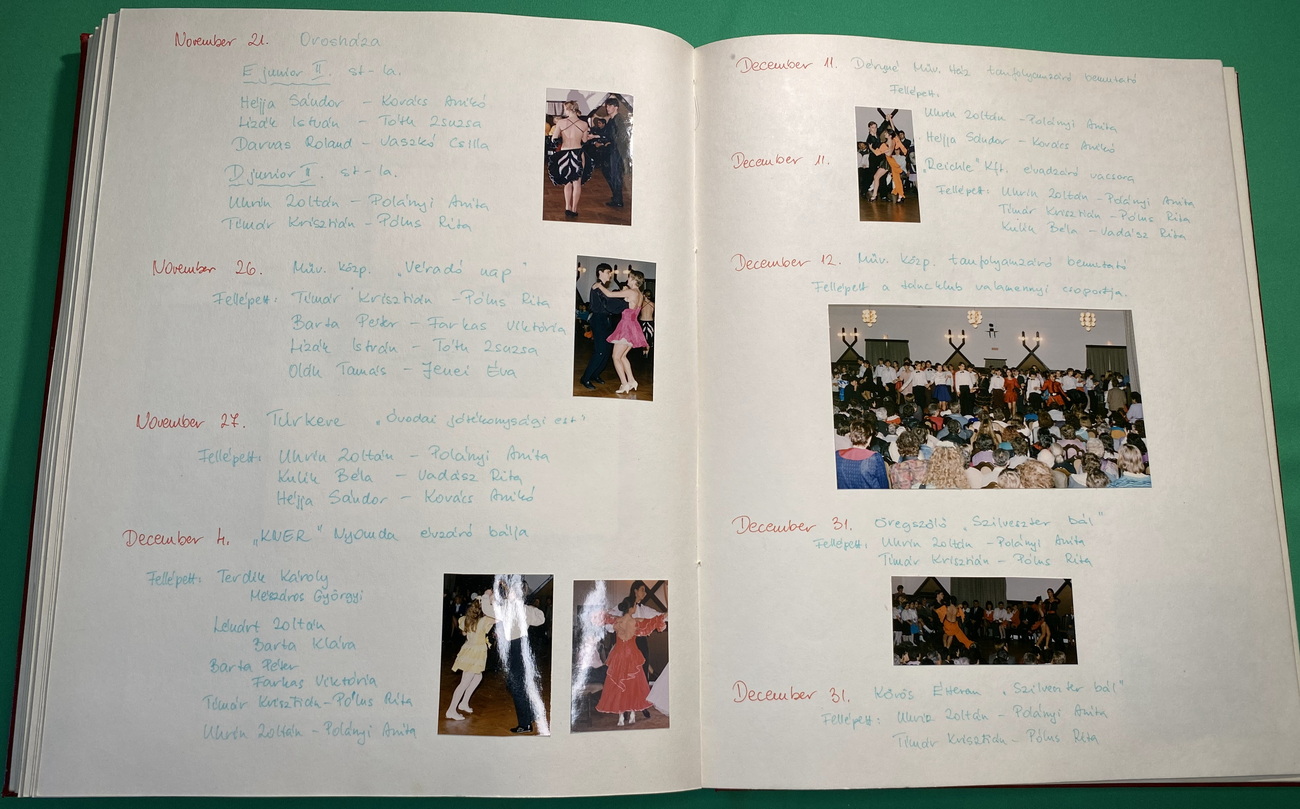 November 21. Orosháza
E junior II. st-la.
Hejja Sándor - Kovács Anikó
Lizák István - Tóth Zsuzsa
Darvas Roland - Vaszkó Csilla
D junior II. st-la.
Uhrin Zoltán - Polányi Anita
Timár Krisztián - Pólus Rita
November 26. Műv. Közp. "Véradó nap"
Fellépett: Timár Krisztián - Pólus Rita
Barta Péter - Farkas Viktória
Lizák István - Tóth Zsuzsa
Oláh Tamás - Jenei Éva
November 27. Túrkeve "Óvodai jótékonysági est"
Fellépett: Uhrin Zoltán - Polányi Anita
Kulik Béla - Vadász Rita
Héjja Sándor - Kovács Anikó
December 4. "KNER" Nyomda évzáró bálja
Fellépett: Terdik Károly
Mészáros Györgyi
Lénárt Zoltán
Barta Klára
Barta Péter
Farkas Viktória
Timár Krisztián - Pólus Rita
Uhrin Zoltán - Polányi Anita
December 11. Déryné Műv. Ház tanfolyamzáró bemutató
Fellépett:
Uhrin Zoltán - Polányi Anita
Hejja Sándor - Kovács Anikó
December 11. "Reichle" Kft. évadzáró vacsora
Fellépett: Uhrin Zoltán - Polányi Anita
Timár Krisztián - Pólus Rita
Kulik Béla - Vadász Rita
December 12. Műv. Közp. tanfolyamzáró bemutató
Fellépett a táncklub valamennyi csoportja.
December 31. Öregszőlő "Szilveszter bál"
Fellépett: Uhrin Zoltán - Polányi Anita
Timár Krisztián - Pólus Rita
December 31. Körös Étterem "Szilveszter bál"
Fellépett: Uhrin Zoltán - Polányi Anita
Timár Krisztián - Pólus Rita